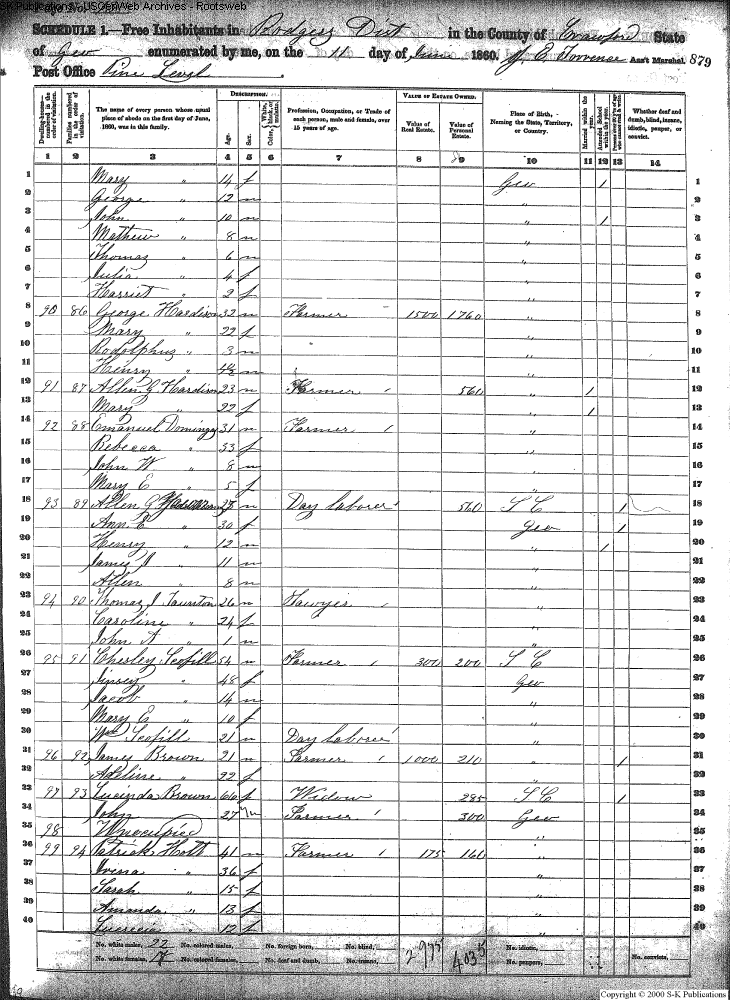 S-K Publications - USGenWeb Archives - Rootsweb
Page No.
SCHEDULE 1.—Free Inhabitants in Rodgers Dist in the County of Crawford State
of Geo enumerated by me, on the 11 day of June 1860. E. Torrense Ass't Marshal. 879
Post Office Pine Level
Dwelling-houses numbered in the order of visitation. Families numbered in the order of visitation. The name of every person whose usual place of abode on the first day of June, 1860, was in this family. DESCRIPTION. Age. Sex. Color, White, black, or mulatto. Profession, Occupation, or Trade of each person, male and female, over 15 years of age. VALUE OF ESTATE OWNED. Value of Real Estate. Value of Personal Estate. Place of Birth, Naming the State, Territory, or Country. Married within the year. Attended School within the year. Persons over 20 y'rs of age who cannot read & write. Whether deaf and dumb, blind, insane, idiotic, pauper, or convict.
1 2 3 4 5 6 7 8 9 10 11 12 13 14
1 Mary " 14 f Geo / 1
2 George " 12 m " 2
3 John " 10 m " / 3
4 Mathew " 8 m " 4
5 Thomas " 6 m " 5
6 Julia " 4 f " 6
7 Harriet " 2 f " 7
8 90 86 George Hardison 32 m Farmer 1500 1760 " 8
9 Mary " 22 f " 9
10 Rodolphus " 3 m " 10
11 Henry " m " 11
12 91 87 Allen G Hardison 23 m Farmer 560 " / 12
13 Mary " 22 f " / 13
14 92 88 Emanuel Domingy 31 m Farmer " 14
15 Rebecca " 33 f " 15
16 John W " 8 m " 16
17 Mary E " 5 f " 17
18 93 89 Allen G m Day laborer 560 S C / 18
19 Ann E " 30 f Geo / 19
20 Henry " 12 m " / 20
21 James J " 11 m " 21
22 Allen " 8 m " 22
23 94 90 Thomas J Taunton 26 m Sawyer " 23
24 Caroline " 24 f " 24
25 John A " 1 m " 25
26 95 91 Chesley Scofill 54 m Farmer 300 200 S C 26
27 Jinsey " 48 f Geo 27
28 Jacob " 14 m " 28
29 Mary E " 10 f " 29
30 Wm Scofill 21 m Day laborer " 30
31 96 92 James Brown 21 m Farmer 1000 210 " / 31
32 Adeline " 22 f " 32
33 97 93 Lucinda Brown 60 f Widow 285 S C / 33
34 John 27 m Farmer 300 Geo 34
35 98 Unoccupied " 35
36 99 94 Patrick Holt 41 m Farmer 175 160 " 36
37 " 36 f " 37
38 Sarah " 15 f " 38
39 Amanda " 13 f " 39
40 Lucrecia " 12 f " 40
No. white males, 22 No. colored males, No. foreign born, No. blind, 2975 4035 No. idiotic,
No. white females, 18 No. colored females, No. deaf and dumb, No. insane, No. paupers, No. convicts,
Copyright © 2000 S-K Publications